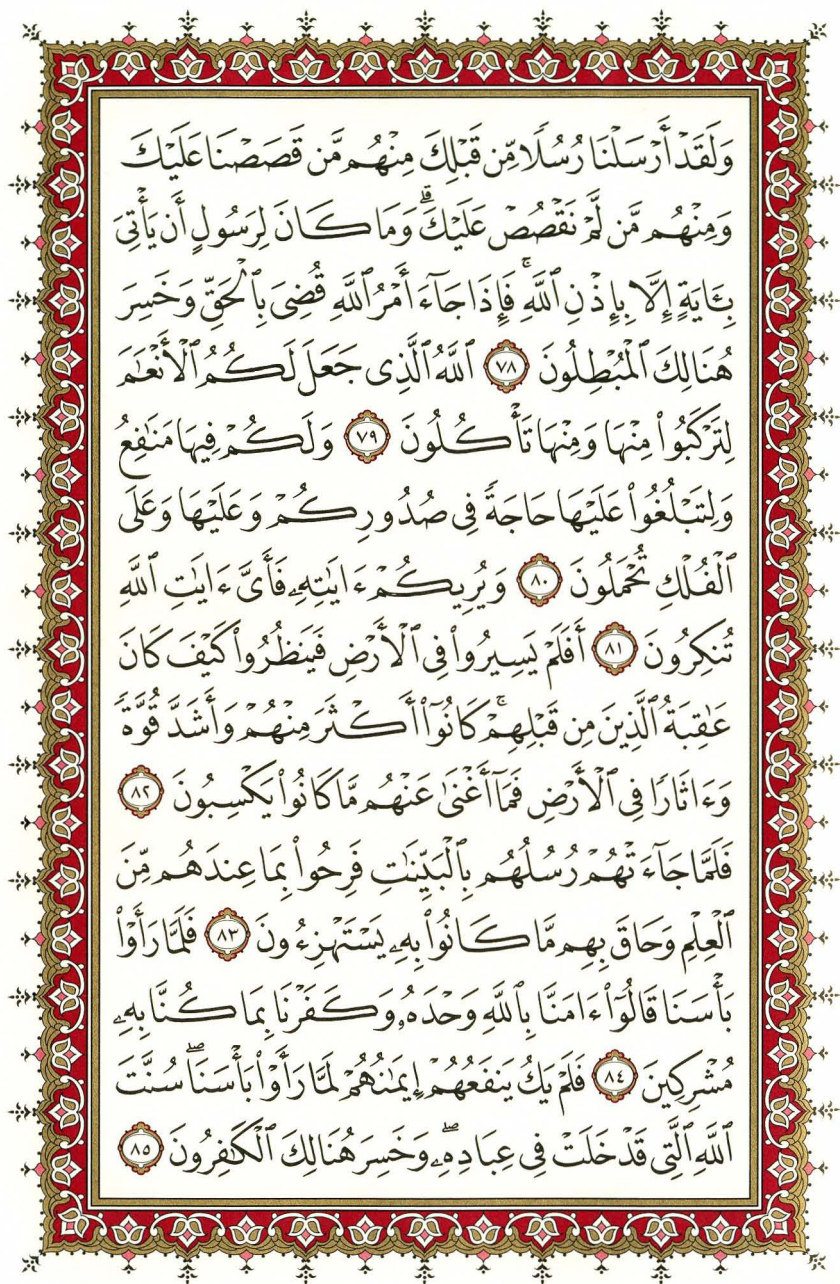 وَلَقَدْ أَرْسَلْنَا رُسُلًا مِّن قَبْلِكَ مِنْهُم مَّن قَصَصْنَا عَلَيْكَ
وَمِنْهُم مَّن لَّمْ نَقْصُصْ عَلَيْكَ ۗ وَمَا كَانَ لِرَسُولٍ أَن يَأْتِىَ
بِـَٔايَةٍ إِلَّا بِإِذْنِ ٱللَّهِ ۚ فَإِذَا جَآءَ أَمْرُ ٱللَّهِ قُضِىَ بِٱلْحَقِّ وَخَسِرَ
هُنَالِكَ ٱلْمُبْطِلُونَ ٧٨ ٱللَّهُ ٱلَّذِى جَعَلَ لَكُمُ ٱلْأَنْعَٰمَ
لِتَرْكَبُوا۟ مِنْهَا وَمِنْهَا تَأْكُلُونَ ٧٩ وَلَكُمْ فِيهَا مَنَٰفِعُ
وَلِتَبْلُغُوا۟ عَلَيْهَا حَاجَةً فِى صُدُورِكُمْ وَعَلَيْهَا وَعَلَى
ٱلْفُلْكِ تُحْمَلُونَ ٨٠ وَيُرِيكُمْ ءَايَٰتِهِۦ فَأَىَّ ءَايَٰتِ ٱللَّهِ
تُنكِرُونَ ٨١ أَفَلَمْ يَسِيرُوا۟ فِى ٱلْأَرْضِ فَيَنظُرُوا۟ كَيْفَ كَانَ
عَٰقِبَةُ ٱلَّذِينَ مِن قَبْلِهِمْ ۚ كَانُوٓا۟ أَكْثَرَ مِنْهُمْ وَأَشَدَّ قُوَّةً
وَءَاثَارًا فِى ٱلْأَرْضِ فَمَآ أَغْنَىٰ عَنْهُم مَّا كَانُوا۟ يَكْسِبُونَ ٨٢
فَلَمَّا جَآءَتْهُمْ رُسُلُهُم بِٱلْبَيِّنَٰتِ فَرِحُوا۟ بِمَا عِندَهُم مِّنَ
ٱلْعِلْمِ وَحَاقَ بِهِم مَّا كَانُوا۟ بِهِۦ يَسْتَهْزِءُونَ ٨٣ فَلَمَّا رَأَوْا۟
بَأْسَنَا قَالُوٓا۟ ءَامَنَّا بِٱللَّهِ وَحْدَهُۥ وَكَفَرْنَا بِمَا كُنَّا بِهِۦ
مُشْرِكِينَ ٨٤ فَلَمْ يَكُ يَنفَعُهُمْ إِيمَٰنُهُمْ لَمَّا رَأَوْا۟ بَأْسَنَا ۖ سُنَّتَ
ٱللَّهِ ٱلَّتِى قَدْ خَلَتْ فِى عِبَادِهِۦ ۖ وَخَسِرَ هُنَالِكَ ٱلْكَٰفِرُونَ ٨٥